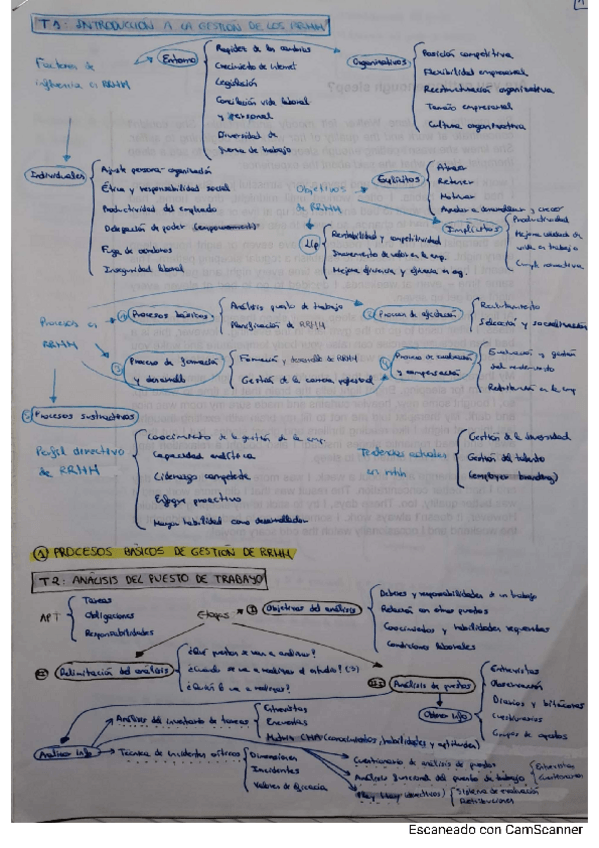 1
T1: INTRODUCCIÓN A LA GESTIÓN DE LOS RRHH
Factores de influencia en RRHH
Entorno
Rapidez de los cambios
Crecimiento de Internet
Legislación
Conciliación vida laboral y personal
Diversidad de fuerza de trabajo
Organizativos
Posición competitiva
Flexibilidad empresarial
Reestructuración organizativa
Tamaño empresarial
Cultura organizativa
Individuales
Ajuste persona-organización
Ética y responsabilidad social
Productividad del empleado
Delegación de poder (empowerment)
Fuga de cerebros
Inseguridad laboral
Objetivos de RRHH
Explícitos
Atraer
Retener
Motivar
Ayudar a desarrollarse y crecer
Implícitos
Productividad
Mejora calidad de vida en trabajo
Cumpl. normativa
L/p
Rentabilidad y competitividad
Incremento de valor en la emp.
Mejora eficiencia y eficacia en org.
Procesos en RRHH
1 Procesos básicos
Análisis puesto de trabajo
Planificación de RRHH
Proceso de afectación
Reclutamiento
Selección y socialización
3 Proceso de formación y desarrollo
Formación y desarrollo de RRHH
Gestión de la carrera profesional
Proceso de evaluación y compensación
Evaluación y gestión del rendimiento
Retribución en la emp
Procesos sustractivos
Perfil directivo de RRHH
Conocimiento de la gestión de la emp.
Capacidad analítica
Liderazgo competente
Enfoque proactivo
Mayor habilidad como desarrollador
Tendencias actuales en
Gestión de la diversidad
Gestión del talento
(employer branding)
1 PROCESOS BÁSICOS DE GESTIÓN DE RRHH
T2: ANÁLISIS DEL PUESTO DE TRABAJO
APT
Tareas
Obligaciones
Responsabilidades
Etapas
Objetivos del análisis
Deberes y responsabilidades de un trabajo
Relación con otros puestos
Conocimientos y habilidades requeridas
Condiciones laborales
Delimitación del análisis
¿Qué puestos se van a analizar?
¿Cuándo se va a realizar el estudio?
¿Quién lo va a realizar?
Análisis de puestos
Obtener info
Entrevistas
Observación
Diarios y bitácoras
Cuestionarios
Grupos de expertos
Analizar info
Análisis del inventario de tareas
Entrevistas
Encuestas
Matriz CHA (conocimientos, habilidades y aptitudes)
Técnica de incidentes críticos
Dimensiones
Incidentes
Valores de eficacia
Cuestionario de análisis de puestos
Análisis funcional del puesto de trabajo
Entrevistas
Cuestionarios
Hay (directivos)
Sistema de evaluación
Retribuciones
Escaneado con CamScanner